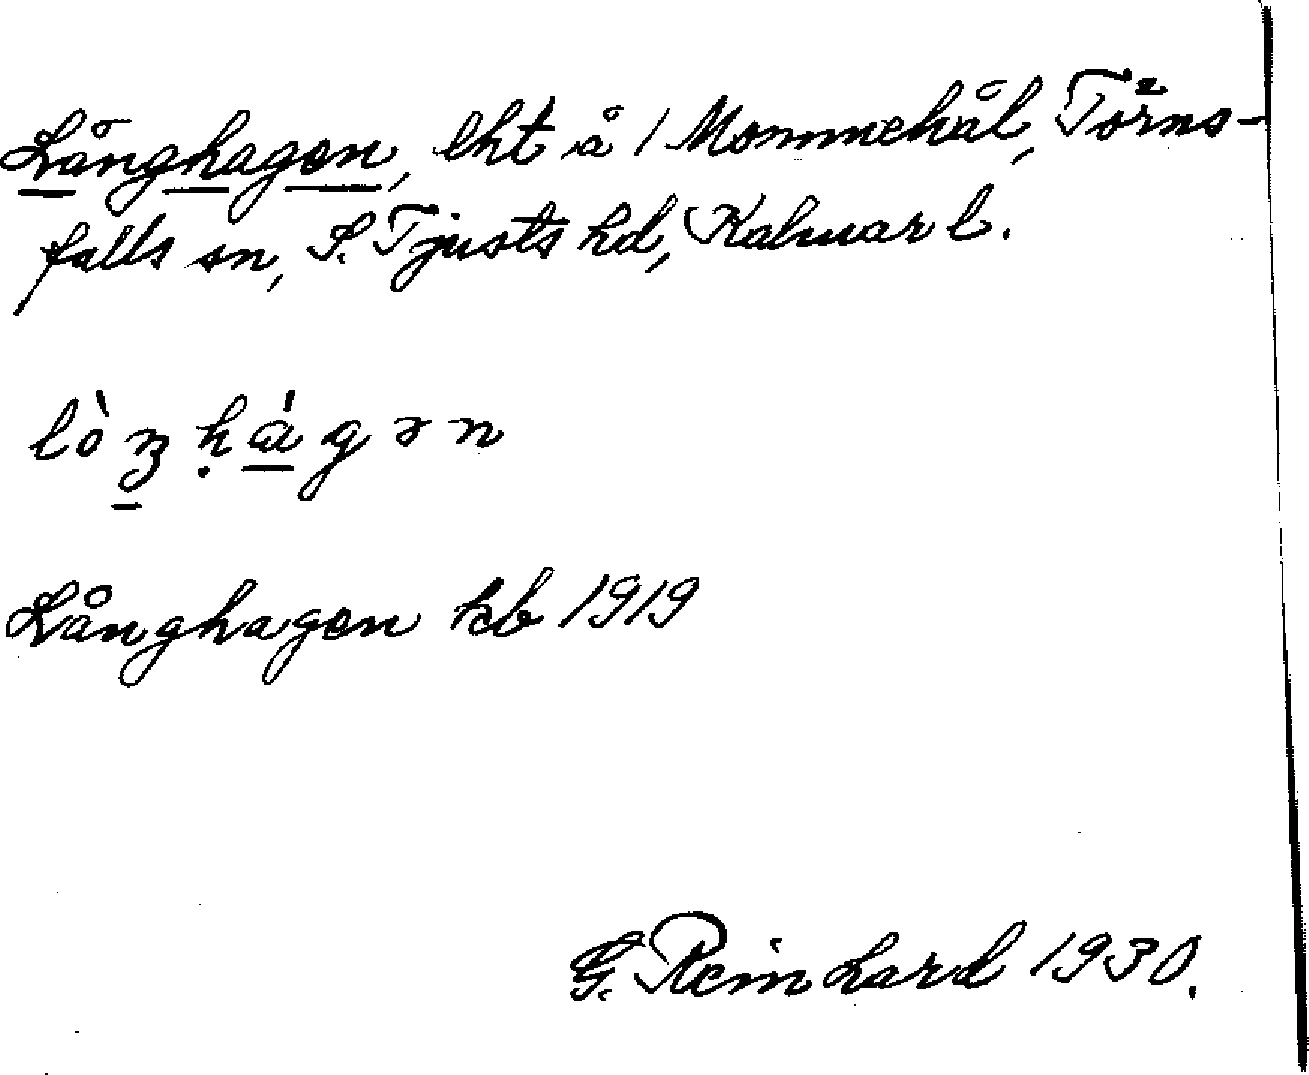 Långhagen, lht å 1 Mommehål, Törns-
falls sn, S. Tjusts hd, Kalmar l.
lòŋhágən
Långhagen kb 1919
G. Reinhard 1930.